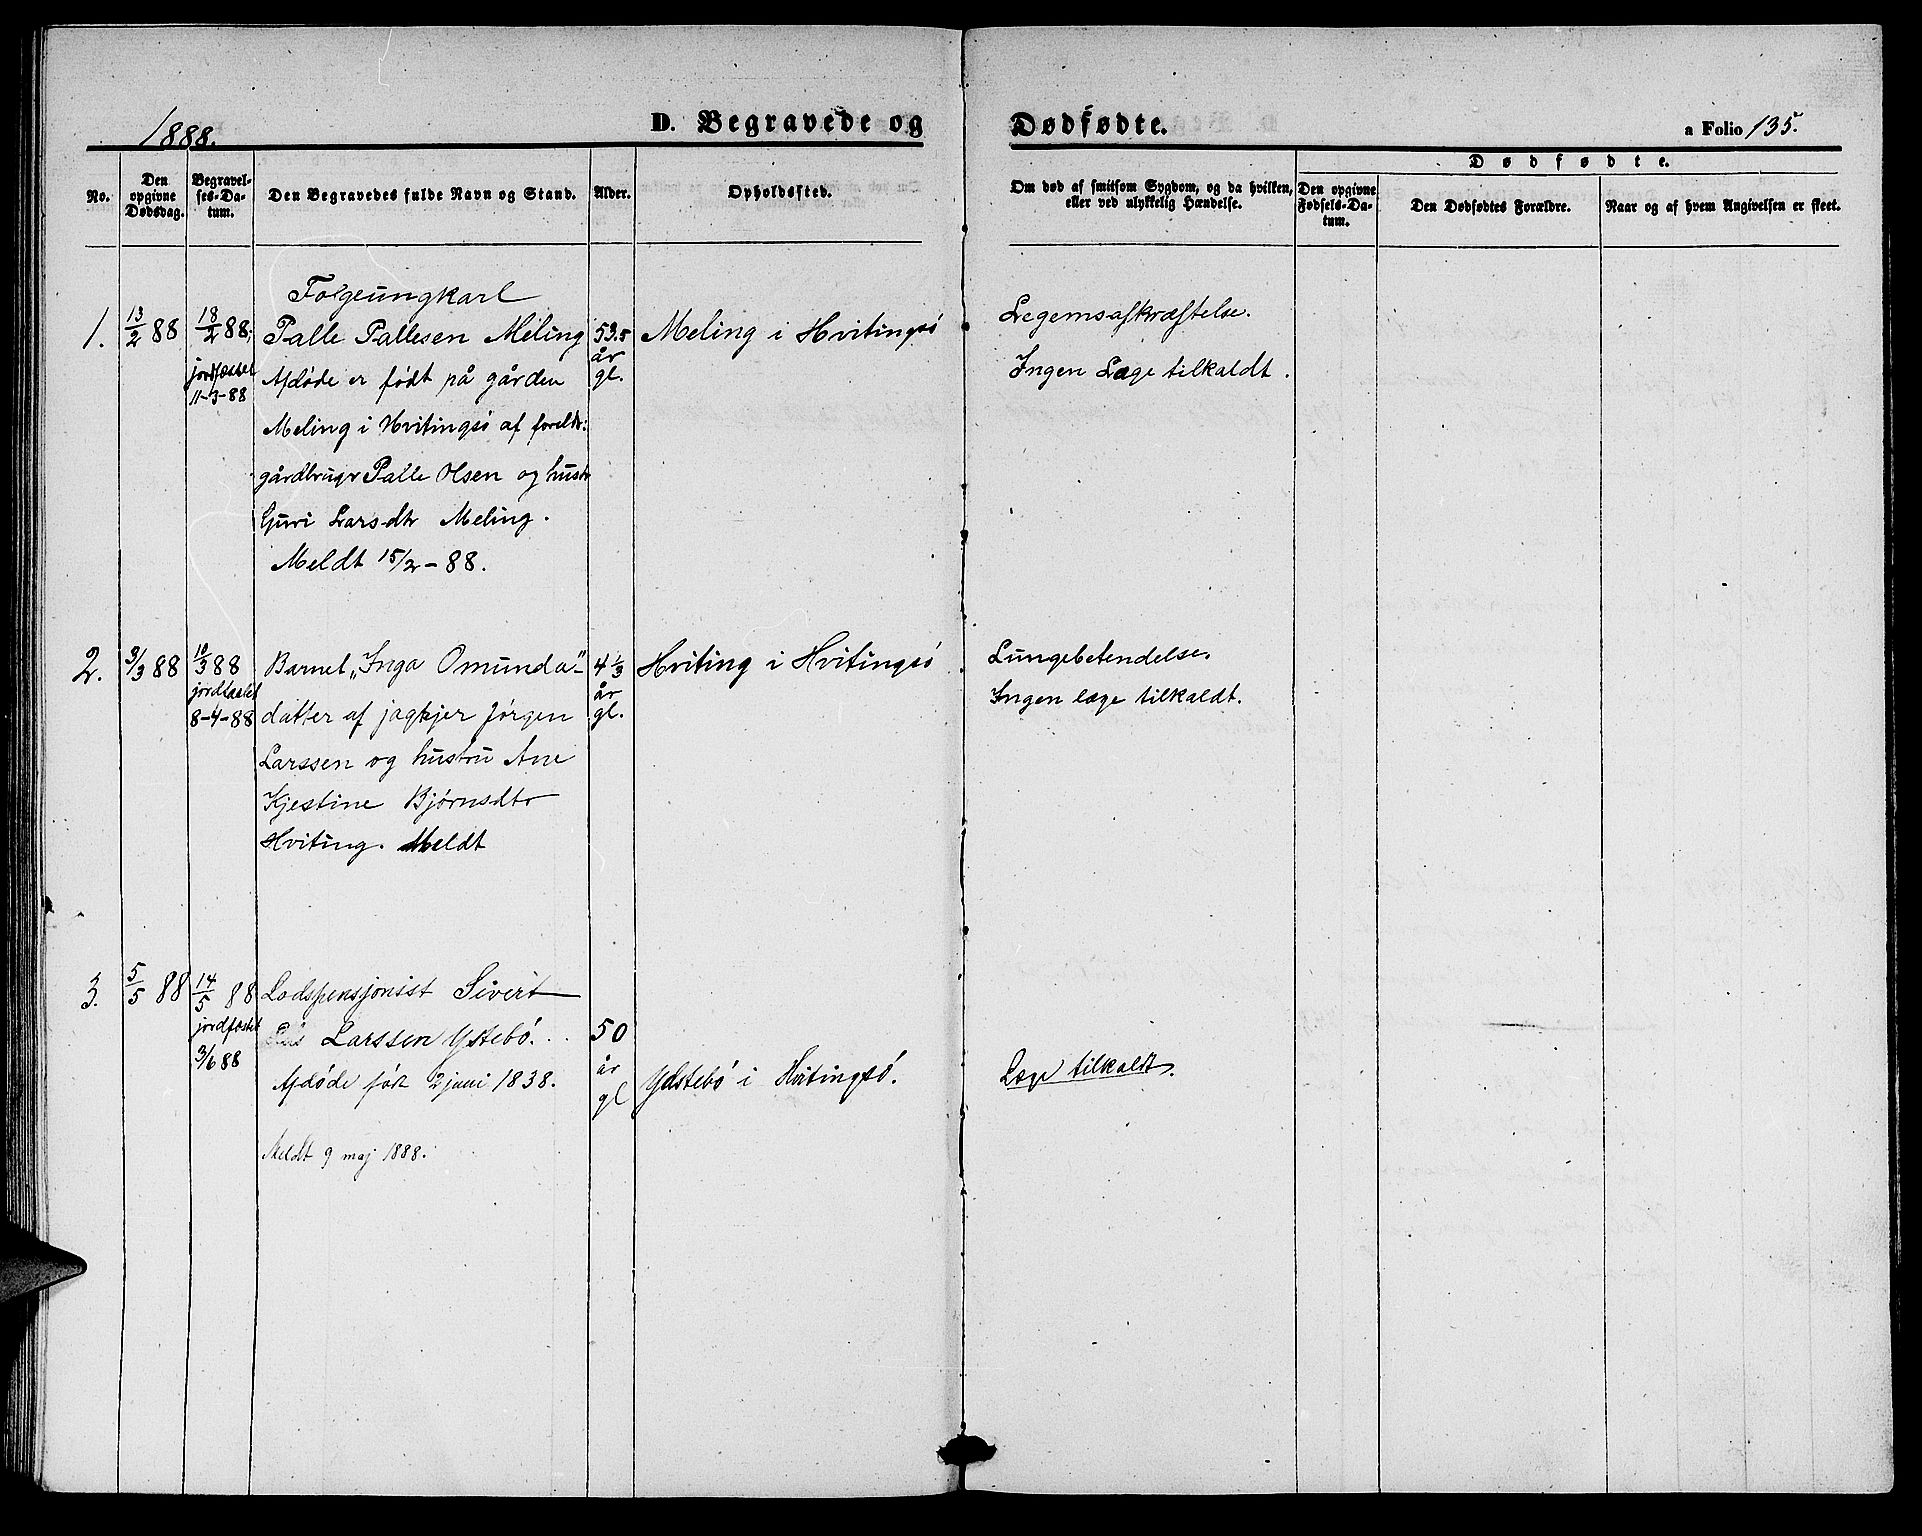 1888.
D. Begravede og Dødfødte.
a Folio 135.
No.
Den opgivne Dødsdag.
Begravel-
ses-Da-
tum.
Den Begravedes fulde Navn og Stand.
Alder.
Opholdssted.
Om død af smitsom Sygdom, og da hvilken,
eller ved ulykkelig Hændelse.
Dødfødte.
Den opgivne
Fødsels-Da-
tum.
Den Dødfødtes Forældre.
Naar og af hvem Angivelsen er skeet.
1.
13/2 88
18/2 88;
jordfæstet
11-3-88
Folgeungkarl
Palle Pallesen Meling
Afdøde er født på gården
Meling i Hvitingsö af foreldr:
gårdbrugr Palle Olsen og hustr
Guri Larsdtr Meling.
Meldt 15/2-88.
53.5
år
gl.
Meling i Hvitingsö
Legemsafkræftelse.
Ingen Læge tilkaldt.
2.
3/3 88
10/3 88
jordfæstet
8-4-88
Barnet "Inga Omunda"-
datter af jagtejer Jörgen
Larssen og hustru Ane
Kjestine Bjørnsdtr
Hviting. Meldt
4 1/3
år
gl.
Hviting i Hvitingsö
Lungebetendelse.
Ingen læge tilkaldt.
3.
5/5 88
14/5 88
jordfæstet
3/6 88
Lodspensjonist Sivert
Larssen Ystebö.
Afdöde födt 2 juni 1838.
Meldt 9 maj 1888.
50
år
gl
Ydstebö i Hvitingsö.
Læge tilkaldt.